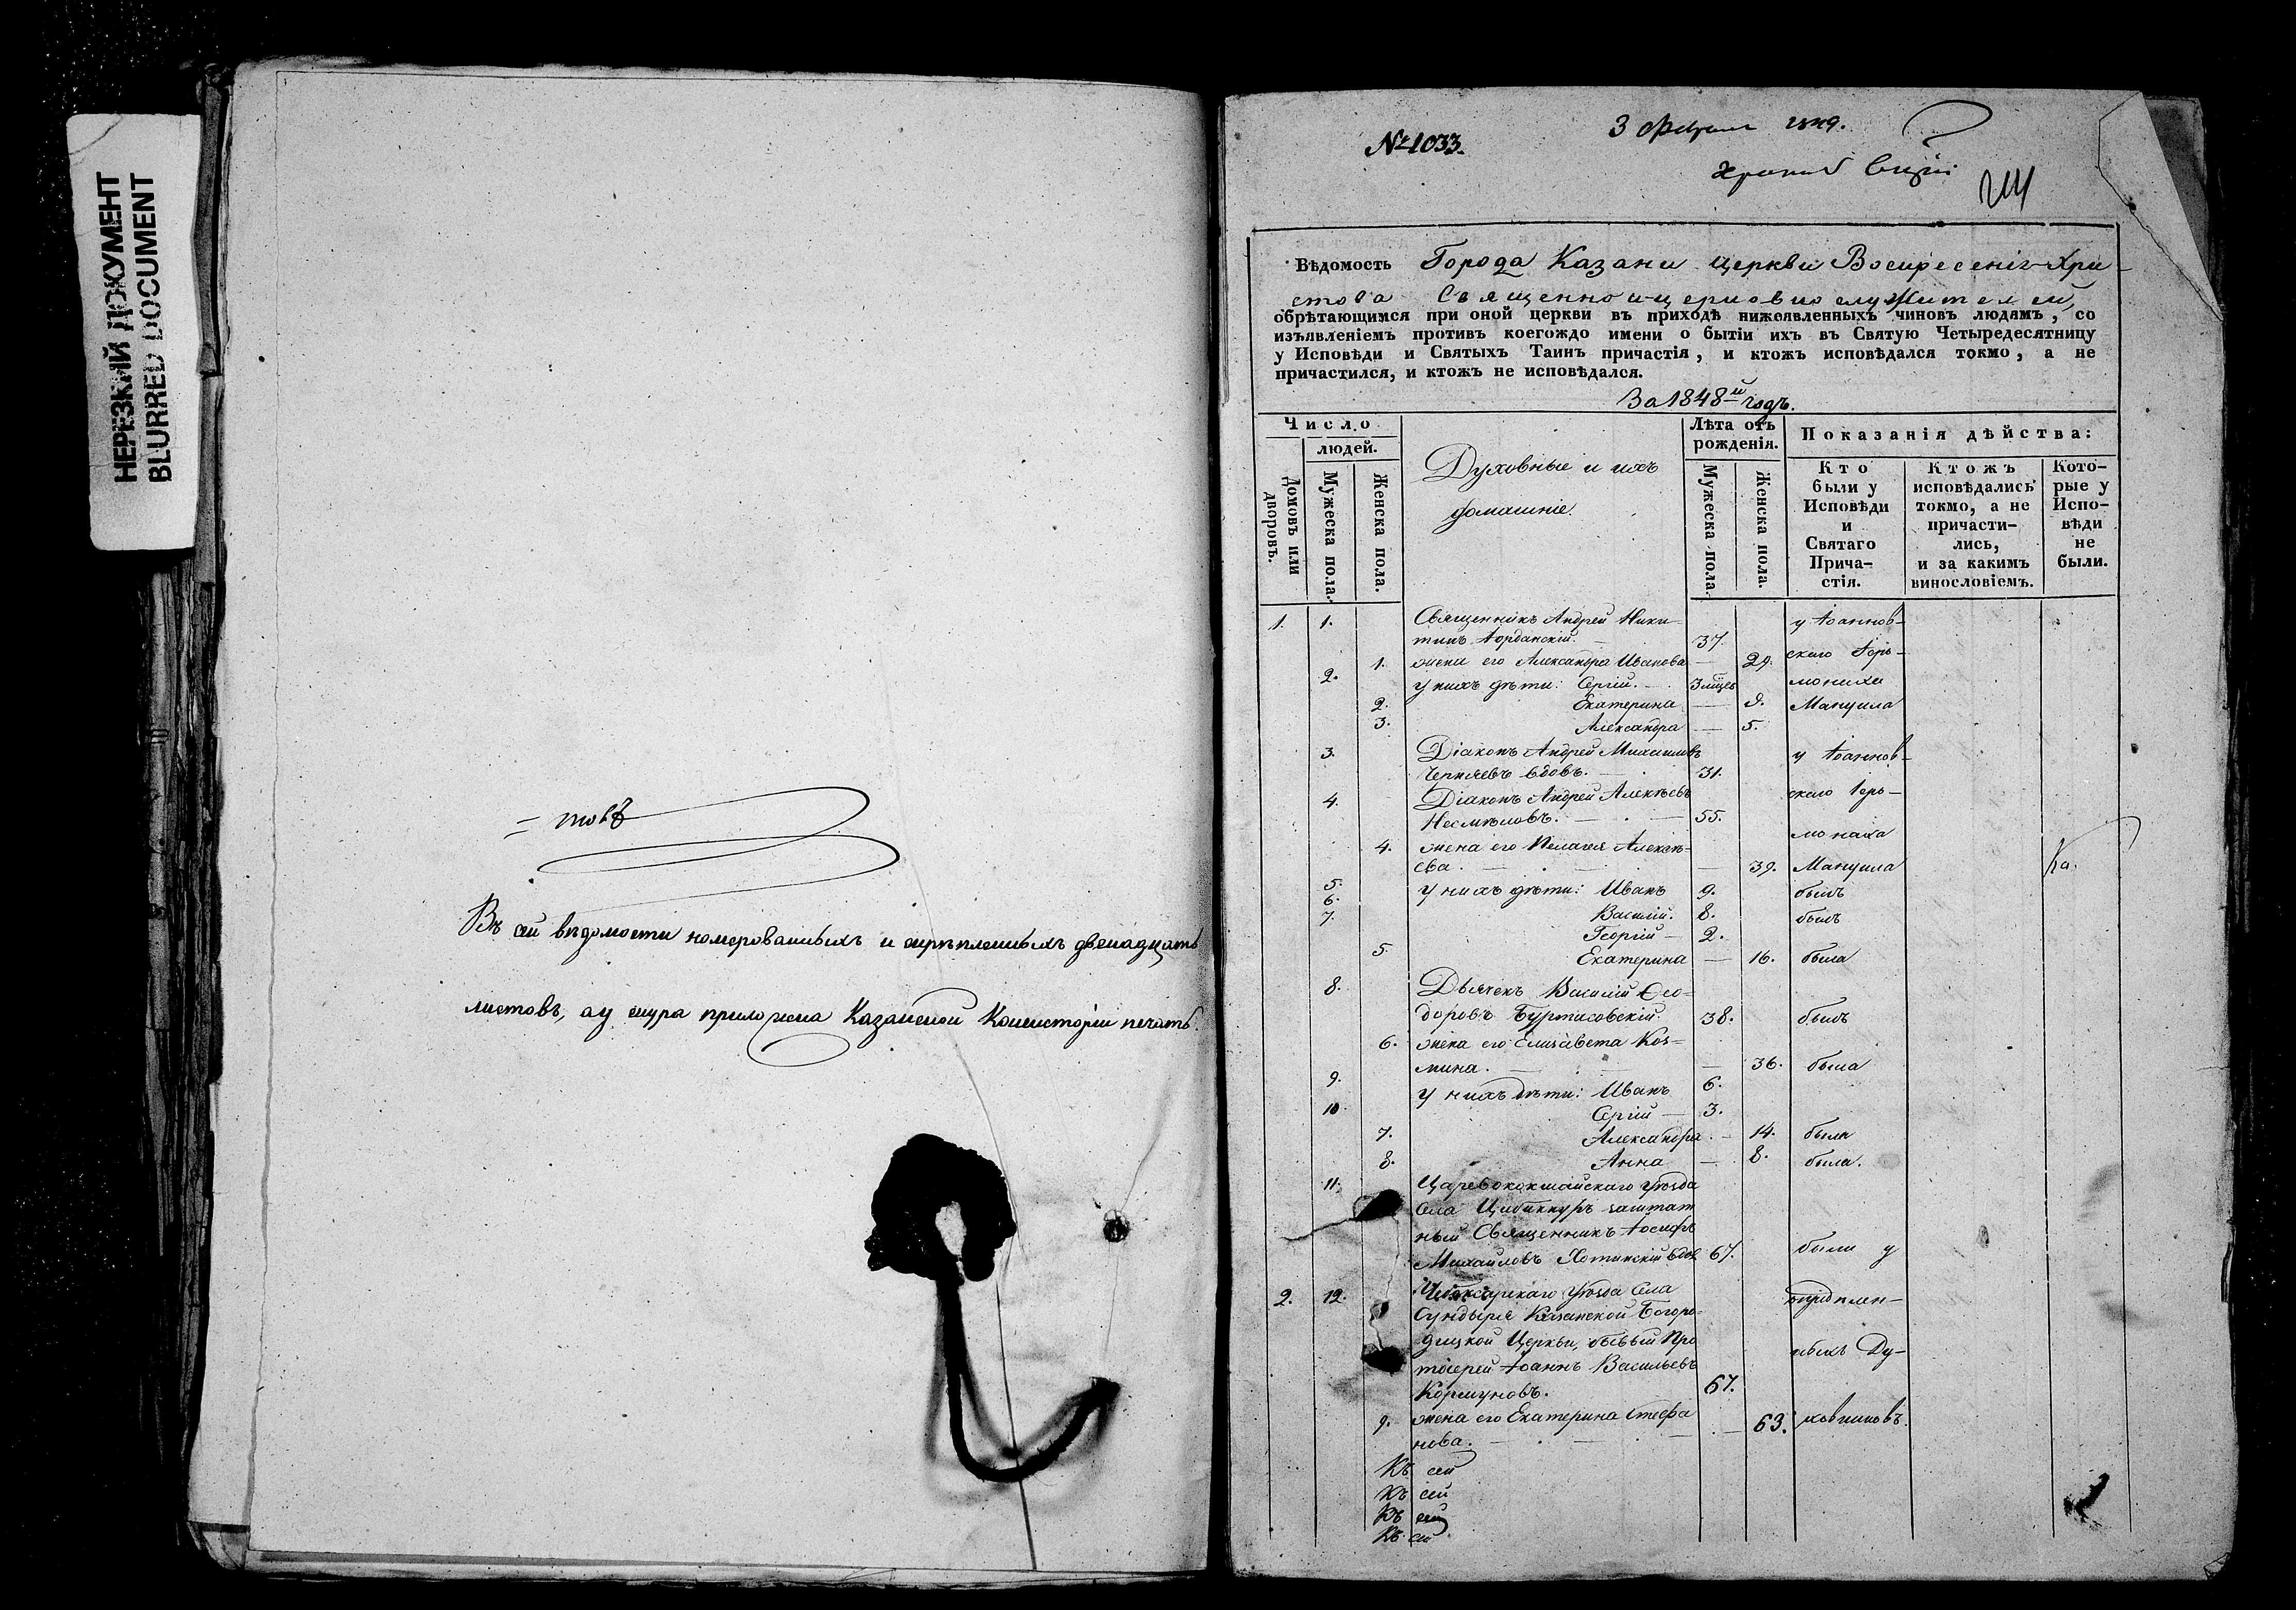 НЕРЕЗКИЙ ДОКУМЕНТ
BLURRED DOCUMENT
= товъ
Въ сей вѣдомости номерованныхъ и скрѣпленныхъ двенадцать
листовъ, а у снура приложена Казанской Консисторіи печать.
№ 1033.
3 Февраля 1849.
Вѣдомость Города Казани церкви Воскресенія Хри-
стова Священно и церковно служителей,
обрѣтающимся при оной церкви въ приходѣ нижеявленныхъ чиновъ людямъ, со
изъявленіемъ противъ коегождо имени о бытіи ихъ въ Святую Четыредесятницу
у Исповѣди и Святыхъ Таинъ причастія, и ктожъ исповѣдался токмо, а не
причастился, и ктожъ не исповѣдался.
За 1848й годъ.
Число
людей.
Домовъ или дворовъ.
Мужеска пола.
Женска пола.
Духовные и ихъ
домашніе.
Лѣта отъ
рожденія.
Мужеска пола.
Женска пола.
Показанія дѣйства:
Кто
были у
Исповѣди
и
Святаго
Прича-
стія.
Ктожъ
исповѣдались
токмо, а не
причасти-
лись,
и за какимъ
винословіемъ.
Кото-
рые у
Испо-
вѣди
не
были.
1. 1. Священникъ Андрей Ники- у Іоаннов-
тинъ Іорданскій. 37.
1. жена его Александра Иванова — 29. скаго Іеро-
2. у нихъ дѣти: Сергій. 3 мѣсц. монаха
2. Екатерина — 9. Мануила
3. Александра — 5.
3. Діаконъ Андрей Михаиловъ у Іоаннов-
Черняевъ вдовъ. 31.
4. Діаконъ Андрей Алексѣевъ скаго Іеро-
Несмѣловъ. 55.
монаха
4. жена его Пелагея Алексѣ-
ева. — 39. Мануила
5. у нихъ дѣти: Иванъ 9. былъ
6. Василій. 8. былъ
7. Георгій — 2.
5. Екатерина — 16. была
8. Дьячекъ Василій Ѳео-
доровъ Буртасовскій. 38. былъ
6. жена его Елисавета Коз-
мина. — 36. была
9. у нихъ дѣти: Иванъ 6.
10. Сергій — 3.
7. Александра. — 14. была
8. Анна — 8. была.
11. Царевококшайскаго уѣзда
села Цибикнуръ заштат
ный Священникъ Іосифъ
Михайловъ Хотинскій вдов 67. были у
2. 12. Чебоксарскаго уѣзда села
Сундыря Казанской Богоро-
дицкой Церкви, бывый Про
тоіерей Іоаннъ Васильевъ ныхъ Ду-
Кормуновъ. 67.
9. жена его Екатерина Стефа — 63. ховниковъ.
нова.
Къ сей
Къ сей
Къ сей
Къ сей